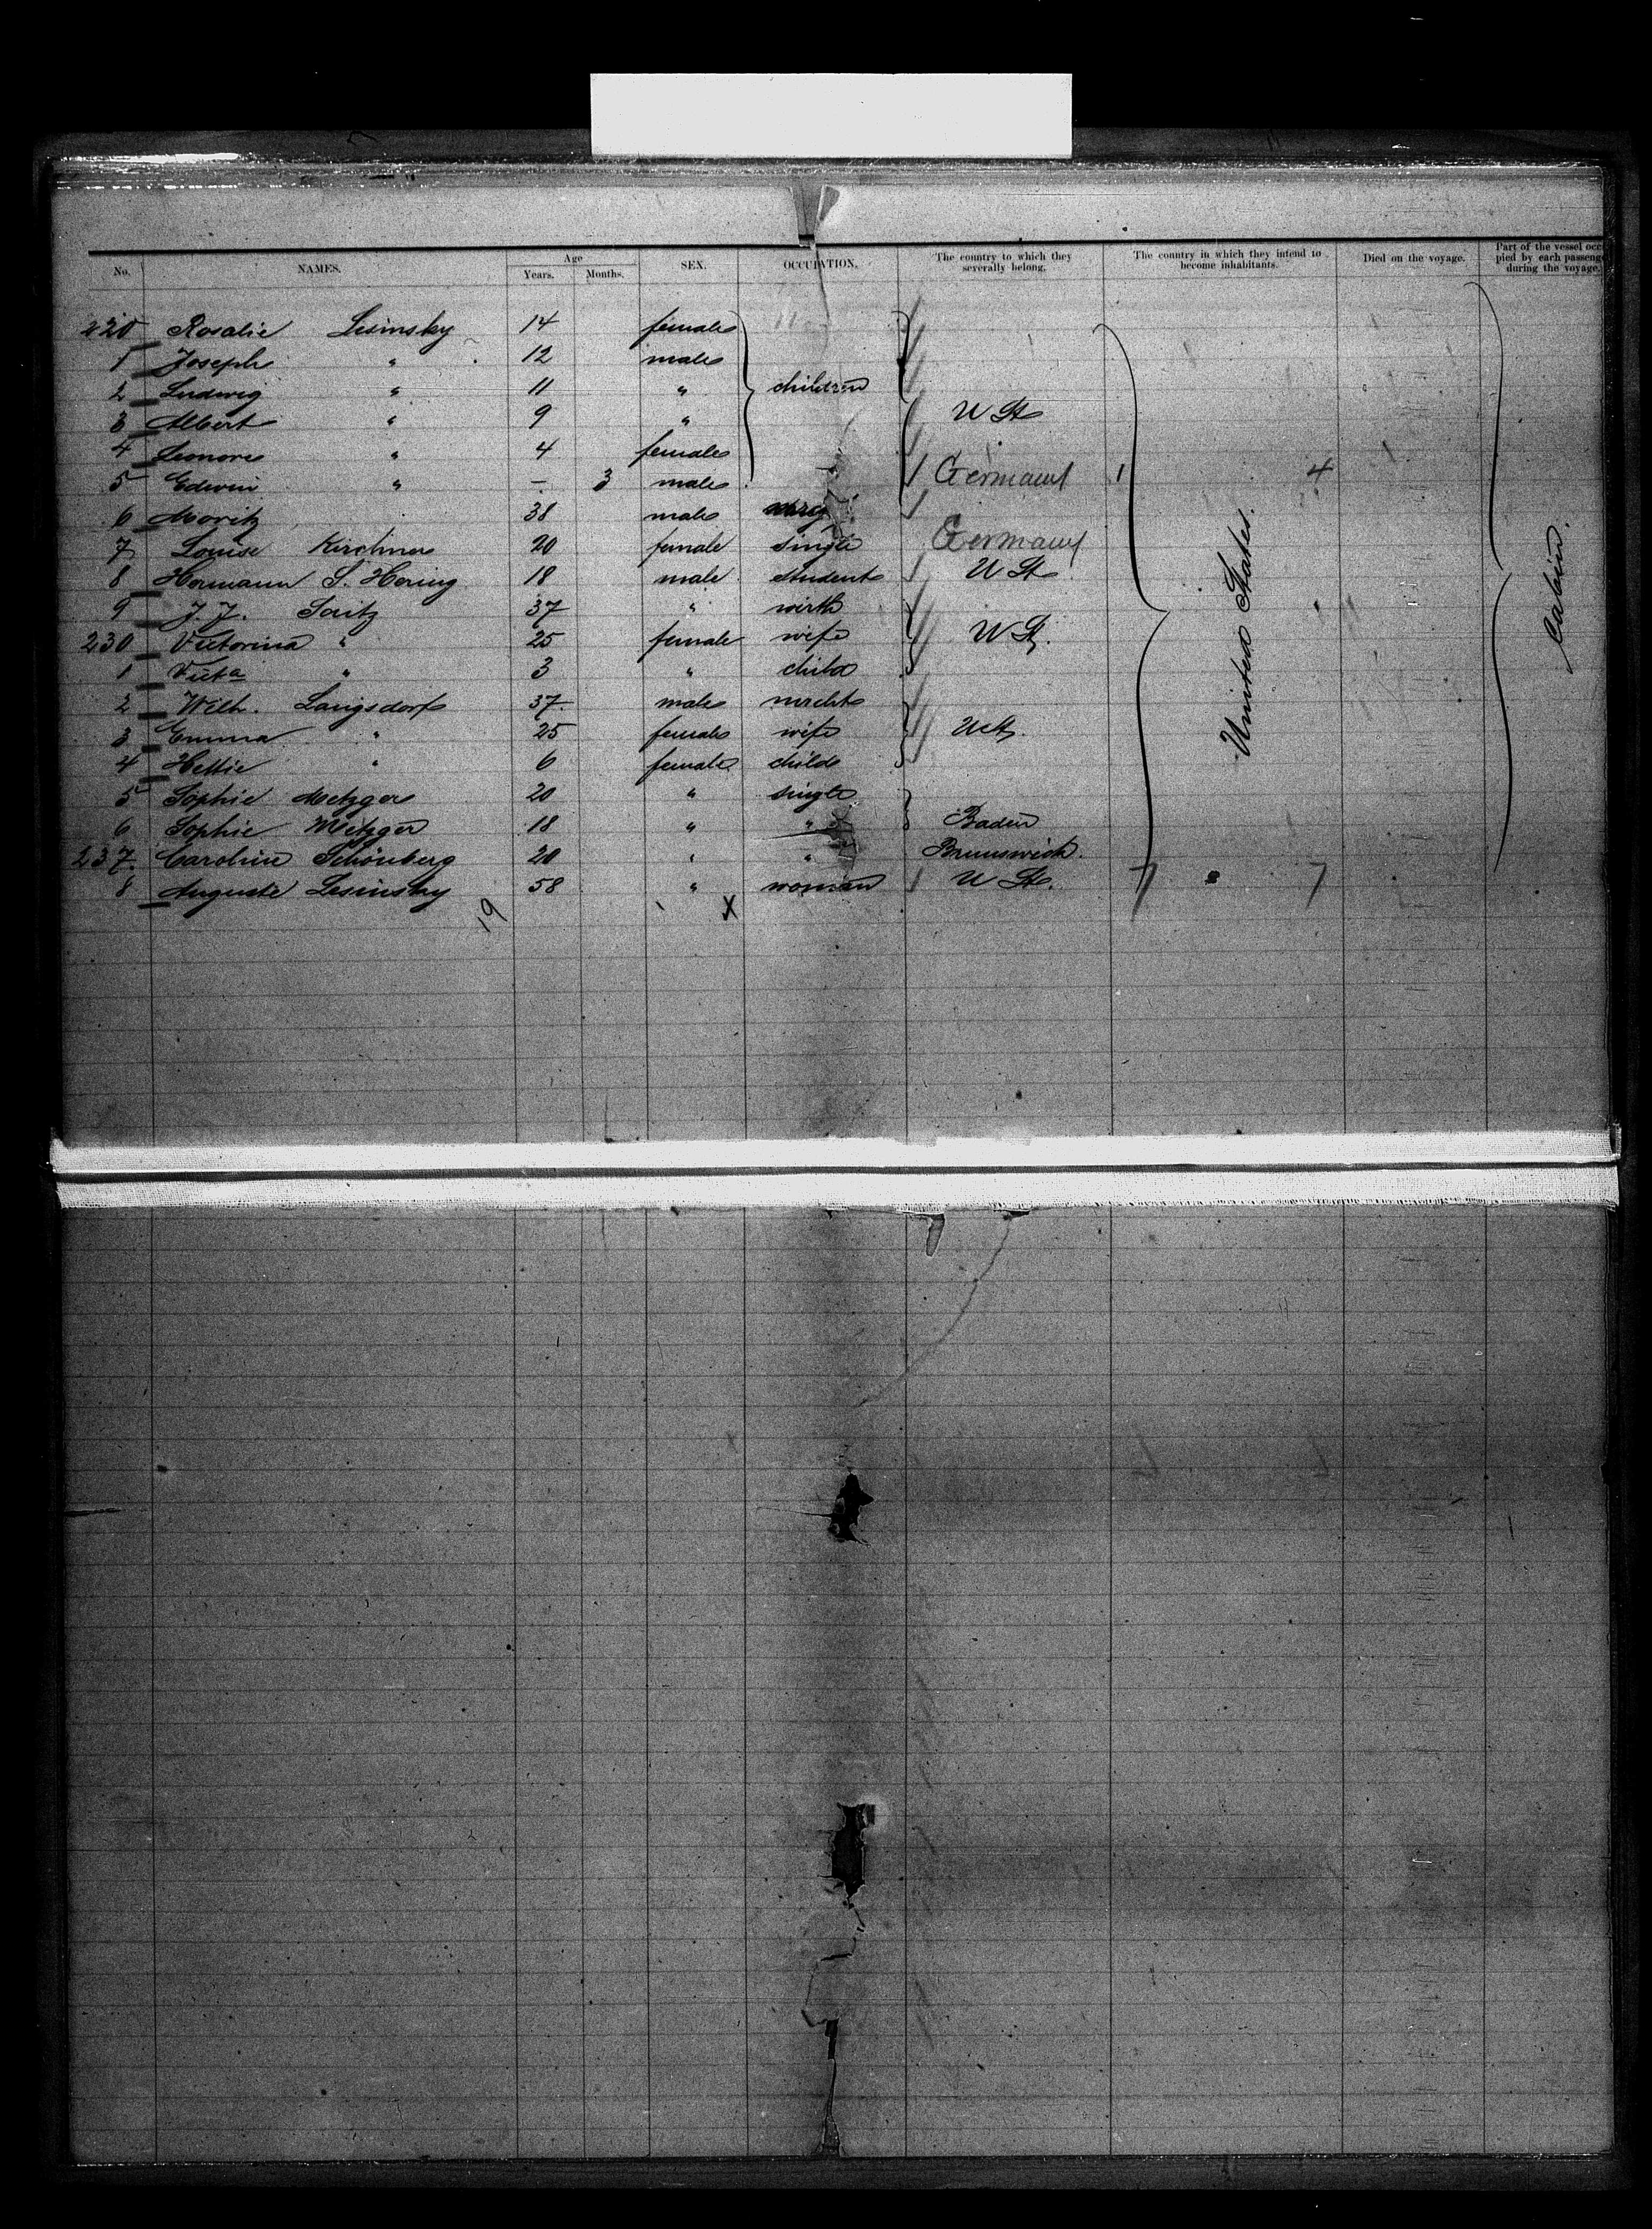 No. NAMES. Age Years. Months. SEX. OCCUPATION. The country to which they severally belong. The country in which they intend to become inhabitants. Died on the voyage. Part of the vessel occu pied by each passenge during the voyage.
220 Rosalie Lesinsky 14 female
1 Joseph " 12 male
2 Ludwig " 11 " children
3 Albert " 9 " U St
4 Leonore " 4 female
5 Edwin " — 3 male Germany 1 4
6 Moritz 38 male
7 Louise Kirchner 20 female single Germany
8 Hermann S. Hering 18 male student U St
9 J. J. 37 " wirth
230 Victorina " 25 female wife U St.
1 Vict a " 3 " child
2 Wilh. Langsdorf 37 male mercht
3 Emma " 25 female wife U St.
4 Hettie " 6 female child
5 Sophie Metzger 20 " single
6 Sophie Metzger 18 " " Baden
237. Caroline Schönberg 20 " " Brunswick.
8 Auguste Lesinsky 58 " woman U St. 7 " 7
19 X
United States.
Cabin.